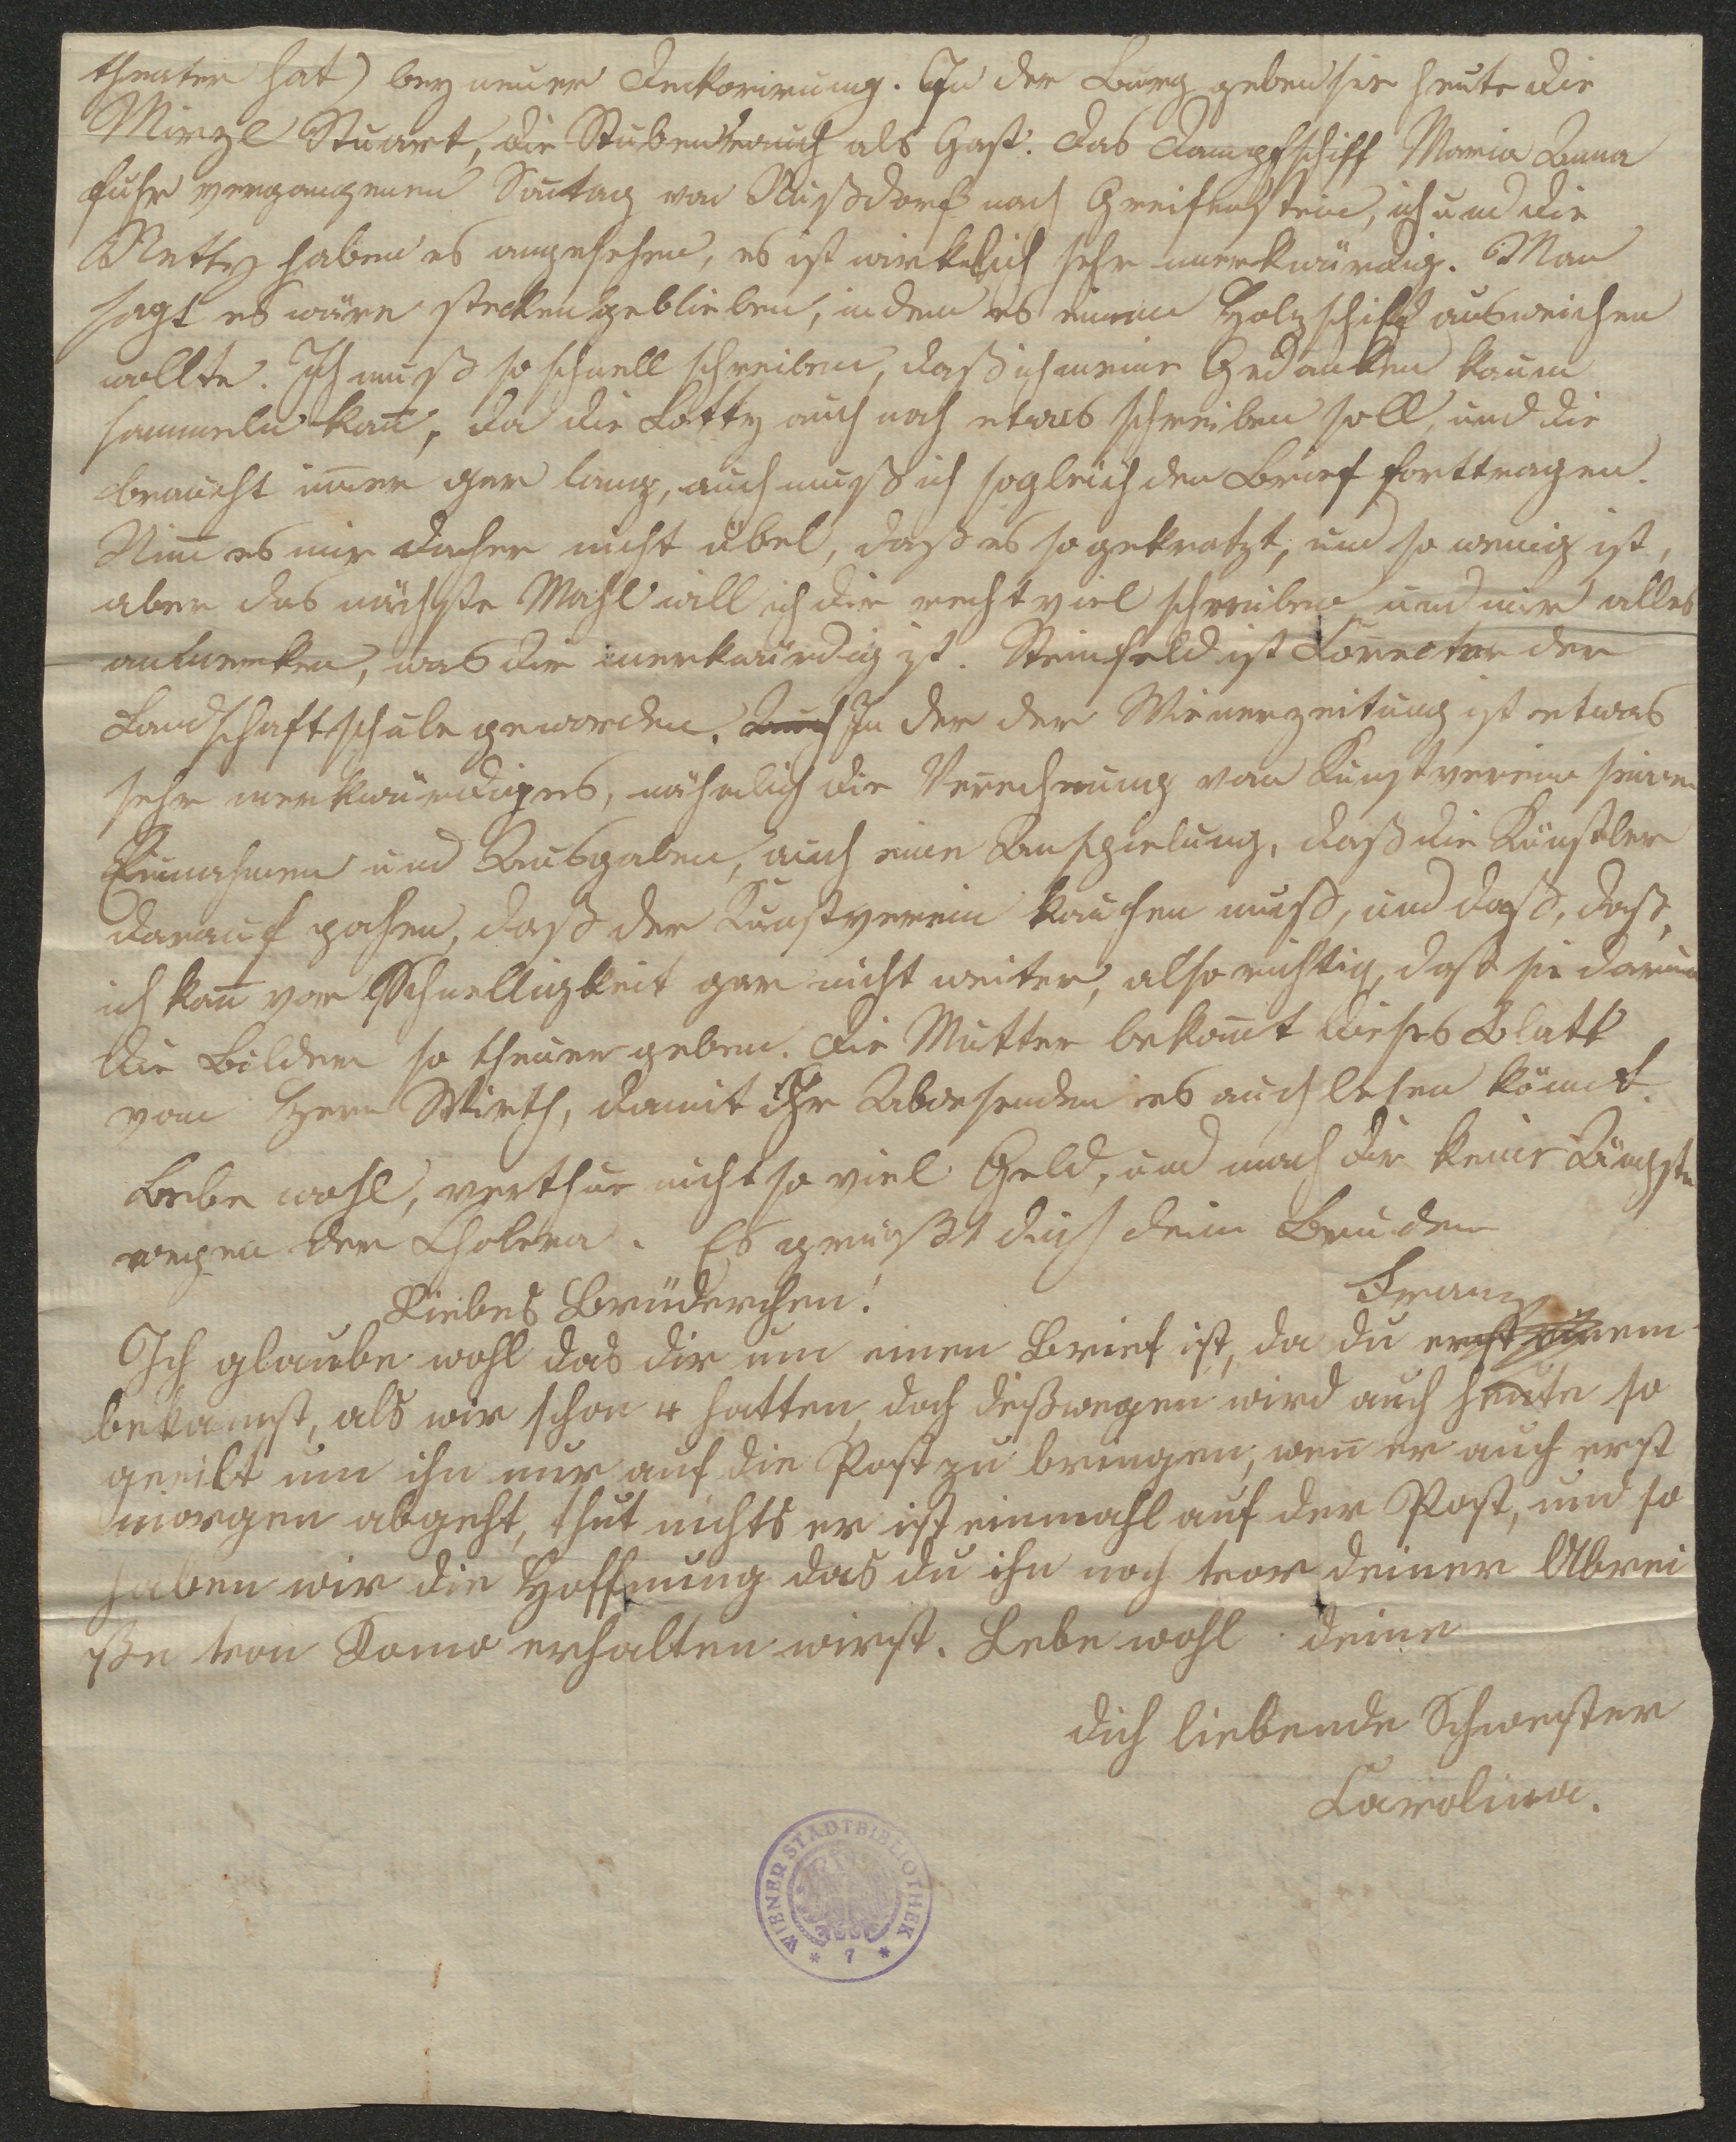 theater hat) bey neuer Deckorirung. In der Burg geben sie heute die
Mirzl Stuart, die Stubenrauch als Gast. Das Dampfschiff Maria Anna
fuhr vergangenen Son̄tag von Nußdorf nach Greifenstein, ich und die
Netty haben es angesehen, es ist wirklich sehr merkwürdig. Man
sagt es wäre stecken geblieben, indem es einem Holzschiff ausweichen
wollte. Ich muß so schnell schreiben, daß ich meine Gedanken kaum
sammeln kan̄, da die Lotty auch noch etwas schreiben soll, und die
braucht im̄er gar lang, auch muß ich sogleich den Brief forttragen.
Nim̄ es mir daher nicht übel, daß es so gekratzt, und so wenig ist,
aber das nächste Mahl will ich dir recht viel schreiben und mir alles
anmerken, was dir merkwürdig ist. Steinfeld ist Corrector der
Landschaftschule geworden. Auch In der der Wienerzeitung ist etwas
sehr merkwürdiges, nähmlich die Verrechnung vom Kunstverein seiner
Einnahmen und Ausgaben, auch eine Anspielung, daß die Künstler
darauf pochen, daß der Kunstverein kaufen muß, und daß, daß,
ich kan̄ vor Schnelligkeit gar nicht weiter, also richtig, daß sie darum
die Bilder so theuer geben. Die Mutter bekom̄t dieses Blatt
vom Herrn Wirth, damit ihr Abwesenden es auch lesen könnt.
Lebe wohl, verthue nicht so viel Geld, und mach dir keine Ängste
wegen der Cholera. Es grüßt dich dein Bruder
Franz
Liebes Brüderchen!
Ich glaube wohl das dir um einen Brief ist, da du erst einem
bekamst, als wir schon 4 hatten, doch deßwegen wird auch heute so
geeilt um ihn nur auf die Post zu bringen, wen̄ er auch erst
morgen abgeht, thut nichts er ist einmahl auf der Post, und so
haben wir die Hoffnung das du ihn noch vor deiner Abrei
ße von Komo erhalten wirst. Lebe wohl deine
dich liebende Schwester
Carolina.
WIENER STADTBIBLIOTHEK
* 7 *